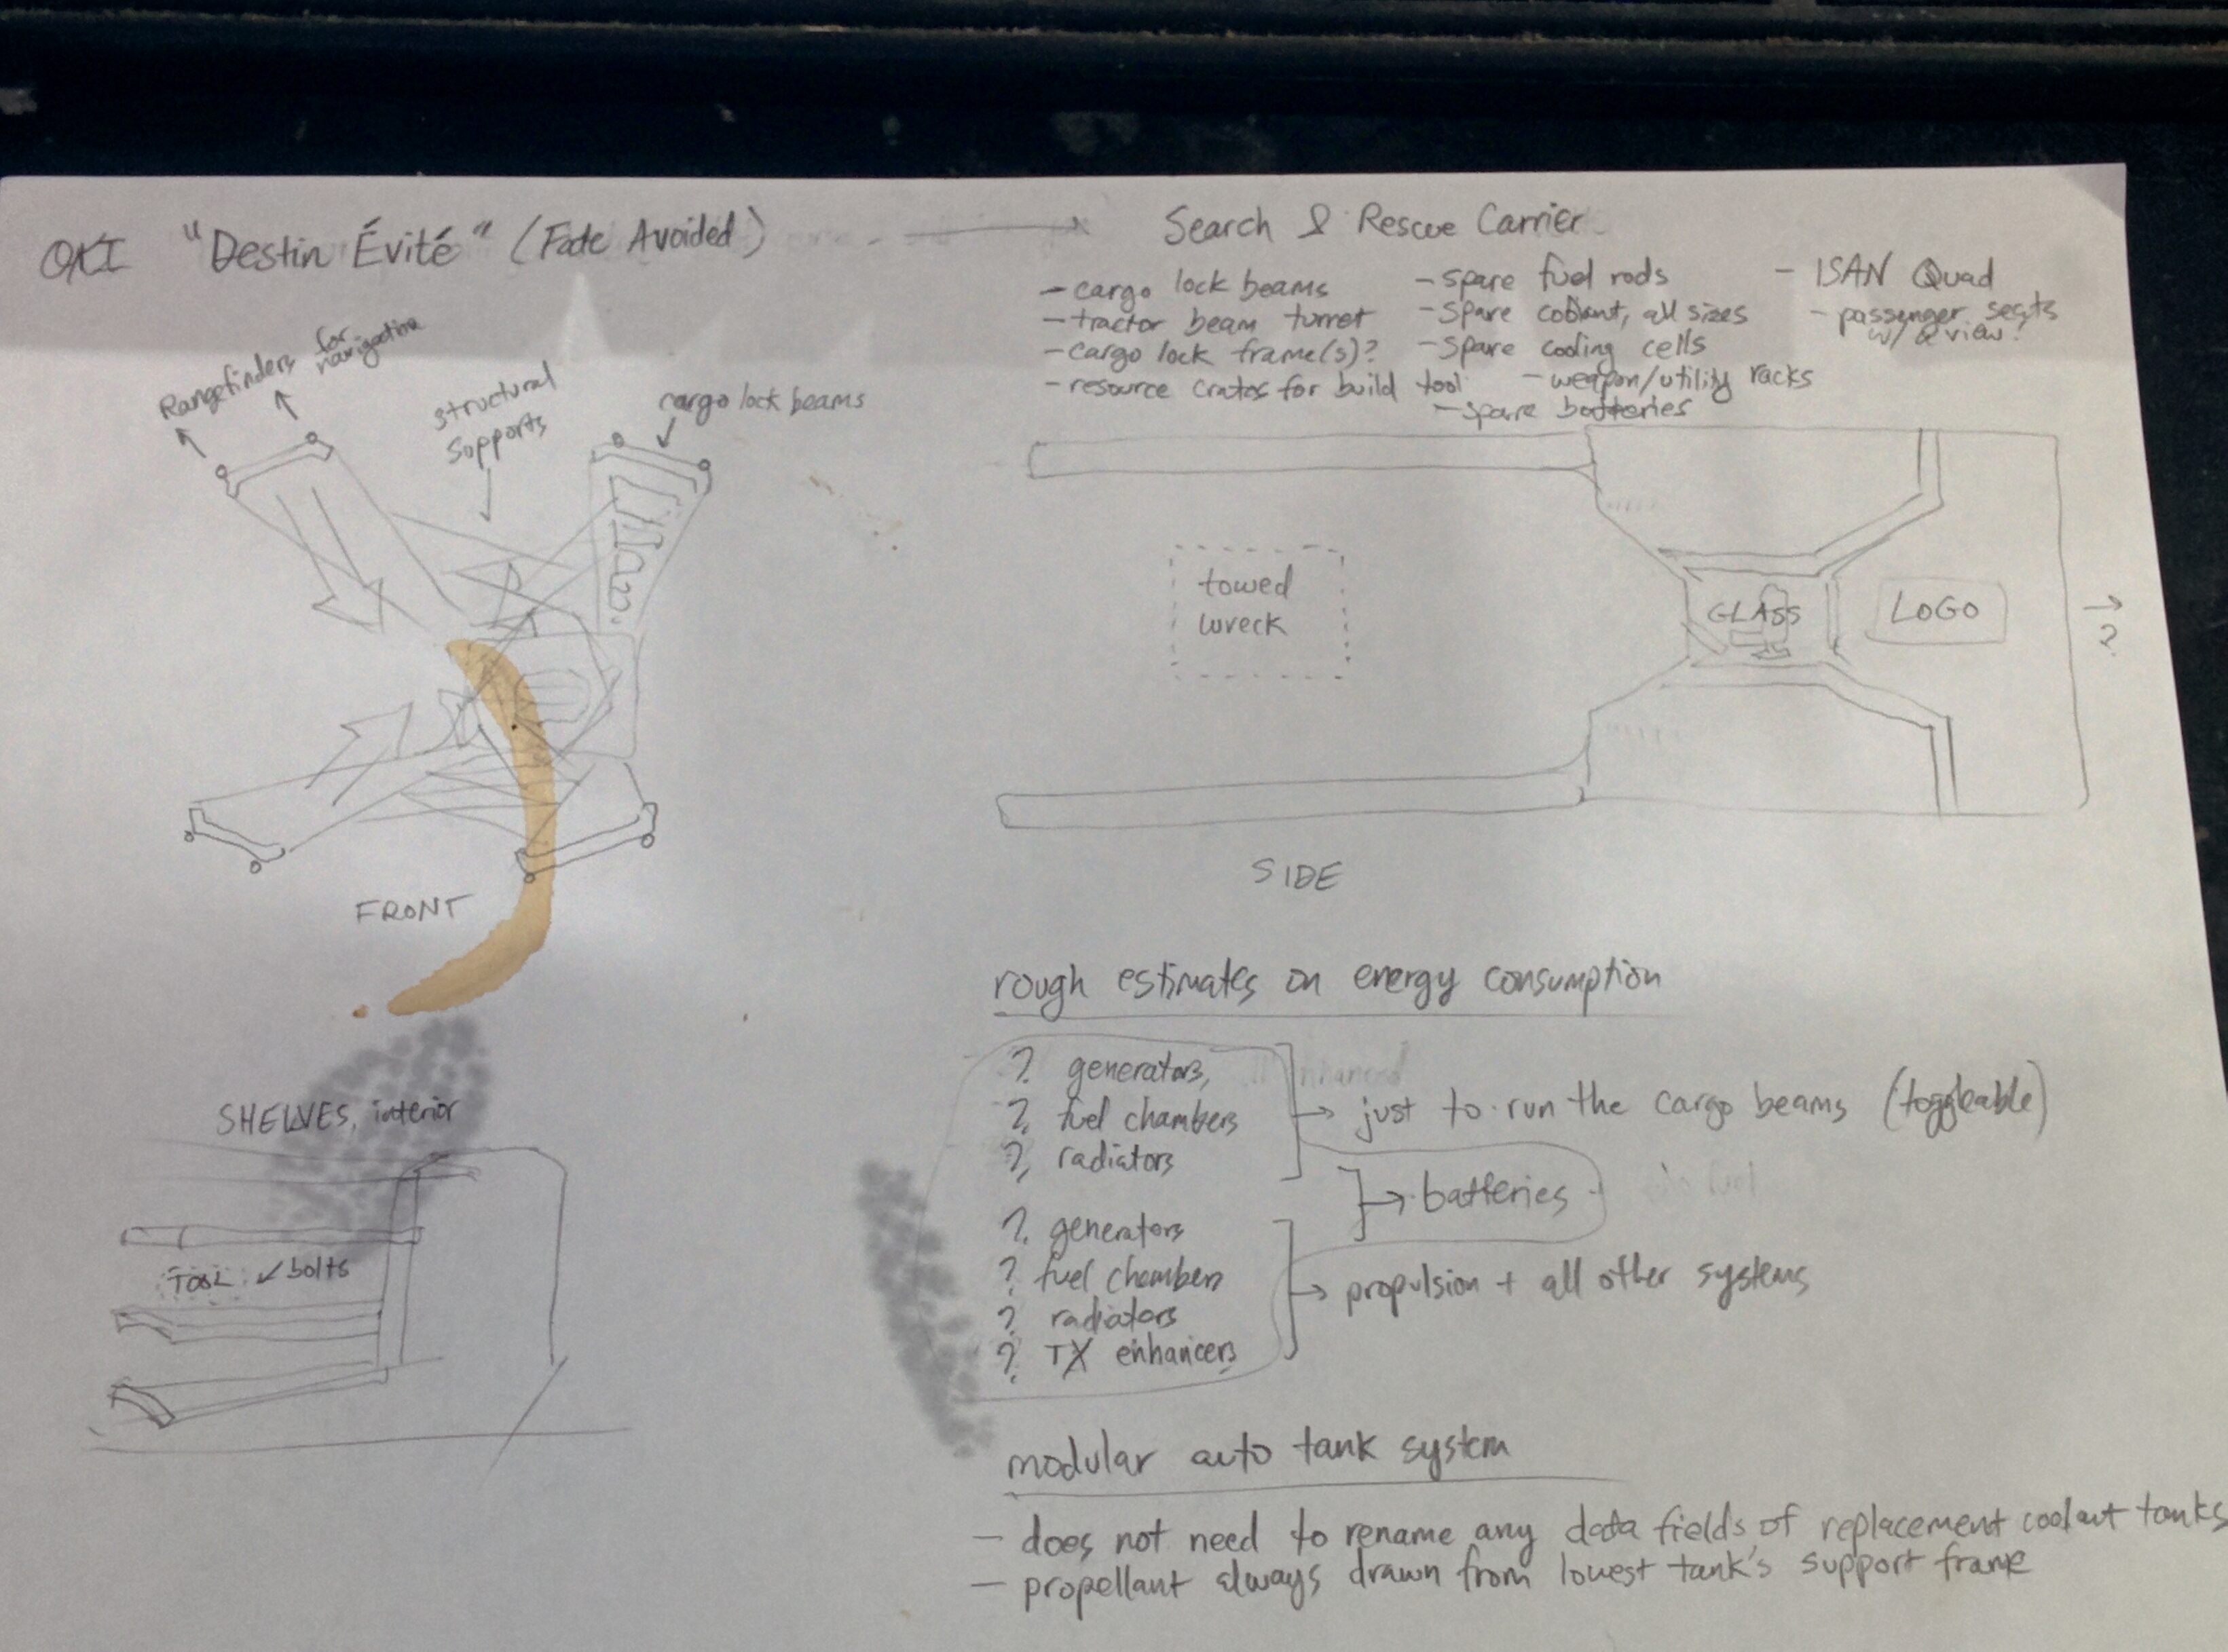 OKI "Destin Évité" (Fate Avoided)
Search & Rescue Carrier
- cargo lock beams
- tractor beam turret
- cargo lock frame(s)?
- resource crates for build tool
- spare fuel rods
- spare coolant, all sizes
- spare cooling cells
- weapon/utility racks
- spare batteries
- ISAN Quad
- passenger seats
w/ a view?
Rangefinders for
navigation
structural
supports
cargo lock beams
FRONT
towed
wreck
GLASS
LOGO
?
SIDE
rough estimates on energy consumption
? generators,
? fuel chambers
? radiators
just to run the cargo beams (toggleable)
batteries
? generators
? fuel chambers
? radiators
? TX enhancers
propulsion + all other systems
SHELVES, interior
TOOL
bolts
modular auto tank system
- does not need to rename any data fields of replacement coolant tanks
- propellant always drawn from lowest tank's support frame